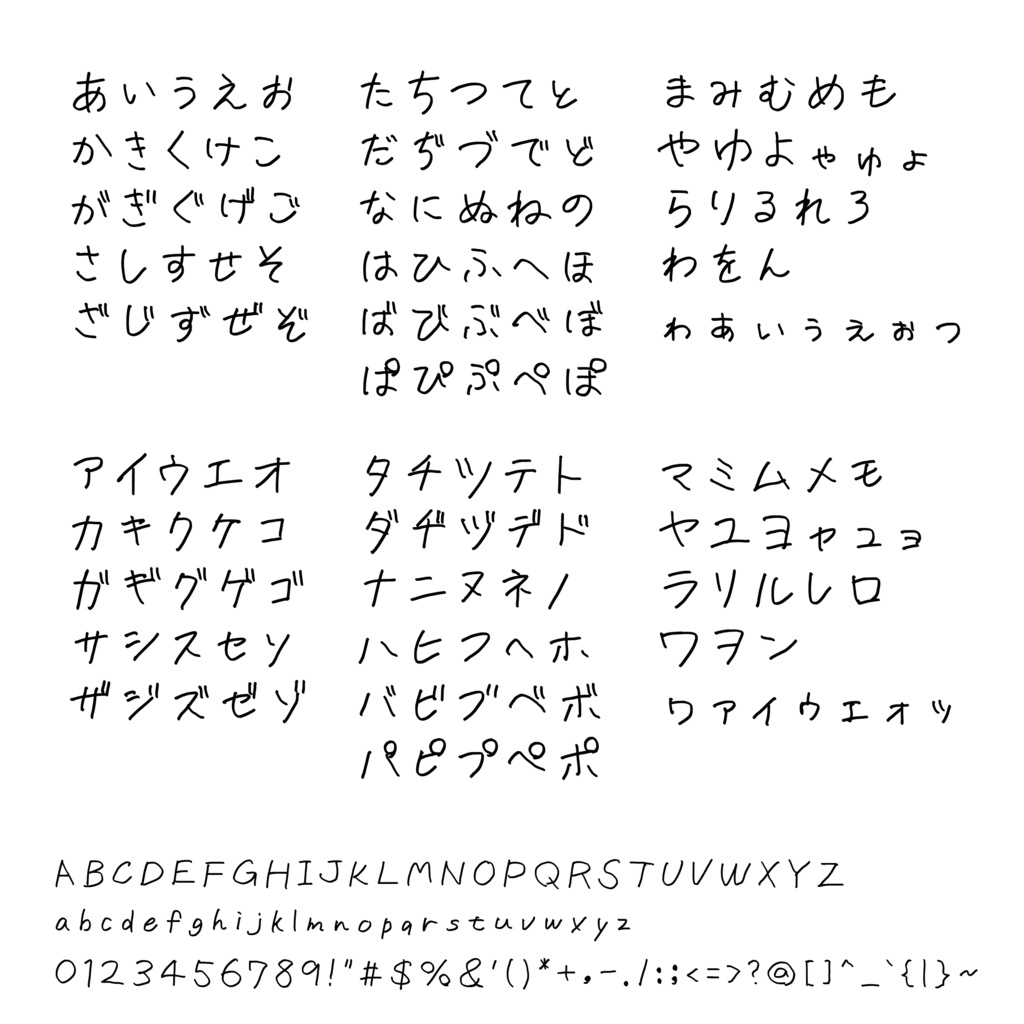 あいうえお
かきくけこ
がぎぐげご
さしすせそ
ざじずぜぞ
たちつてと
だぢづでど
なにぬねの
はひふへほ
ばびぶべぼ
ぱぴぷぺぽ
まみむめも
やゆよゃゅょ
らりるれろ
わをん
ゎぁぃぅぇぉっ
アイウエオ
カキクケコ
ガギグゲゴ
サシスセソ
ザジズゼゾ
タチツテト
ダヂヅデド
ナニヌネノ
ハヒフヘホ
バビブベボ
パピプペポ
マミムメモ
ヤユヨャュョ
ラリルレロ
ワヲン
ヮァィゥェォッ
ABCDEFGHIJKLMNOPQRSTUVWXYZ
abcdefghijklmnopqrstuvwxyz
0123456789!"#$%&'()*+,-./:;<=>?@[]^_`{|}~